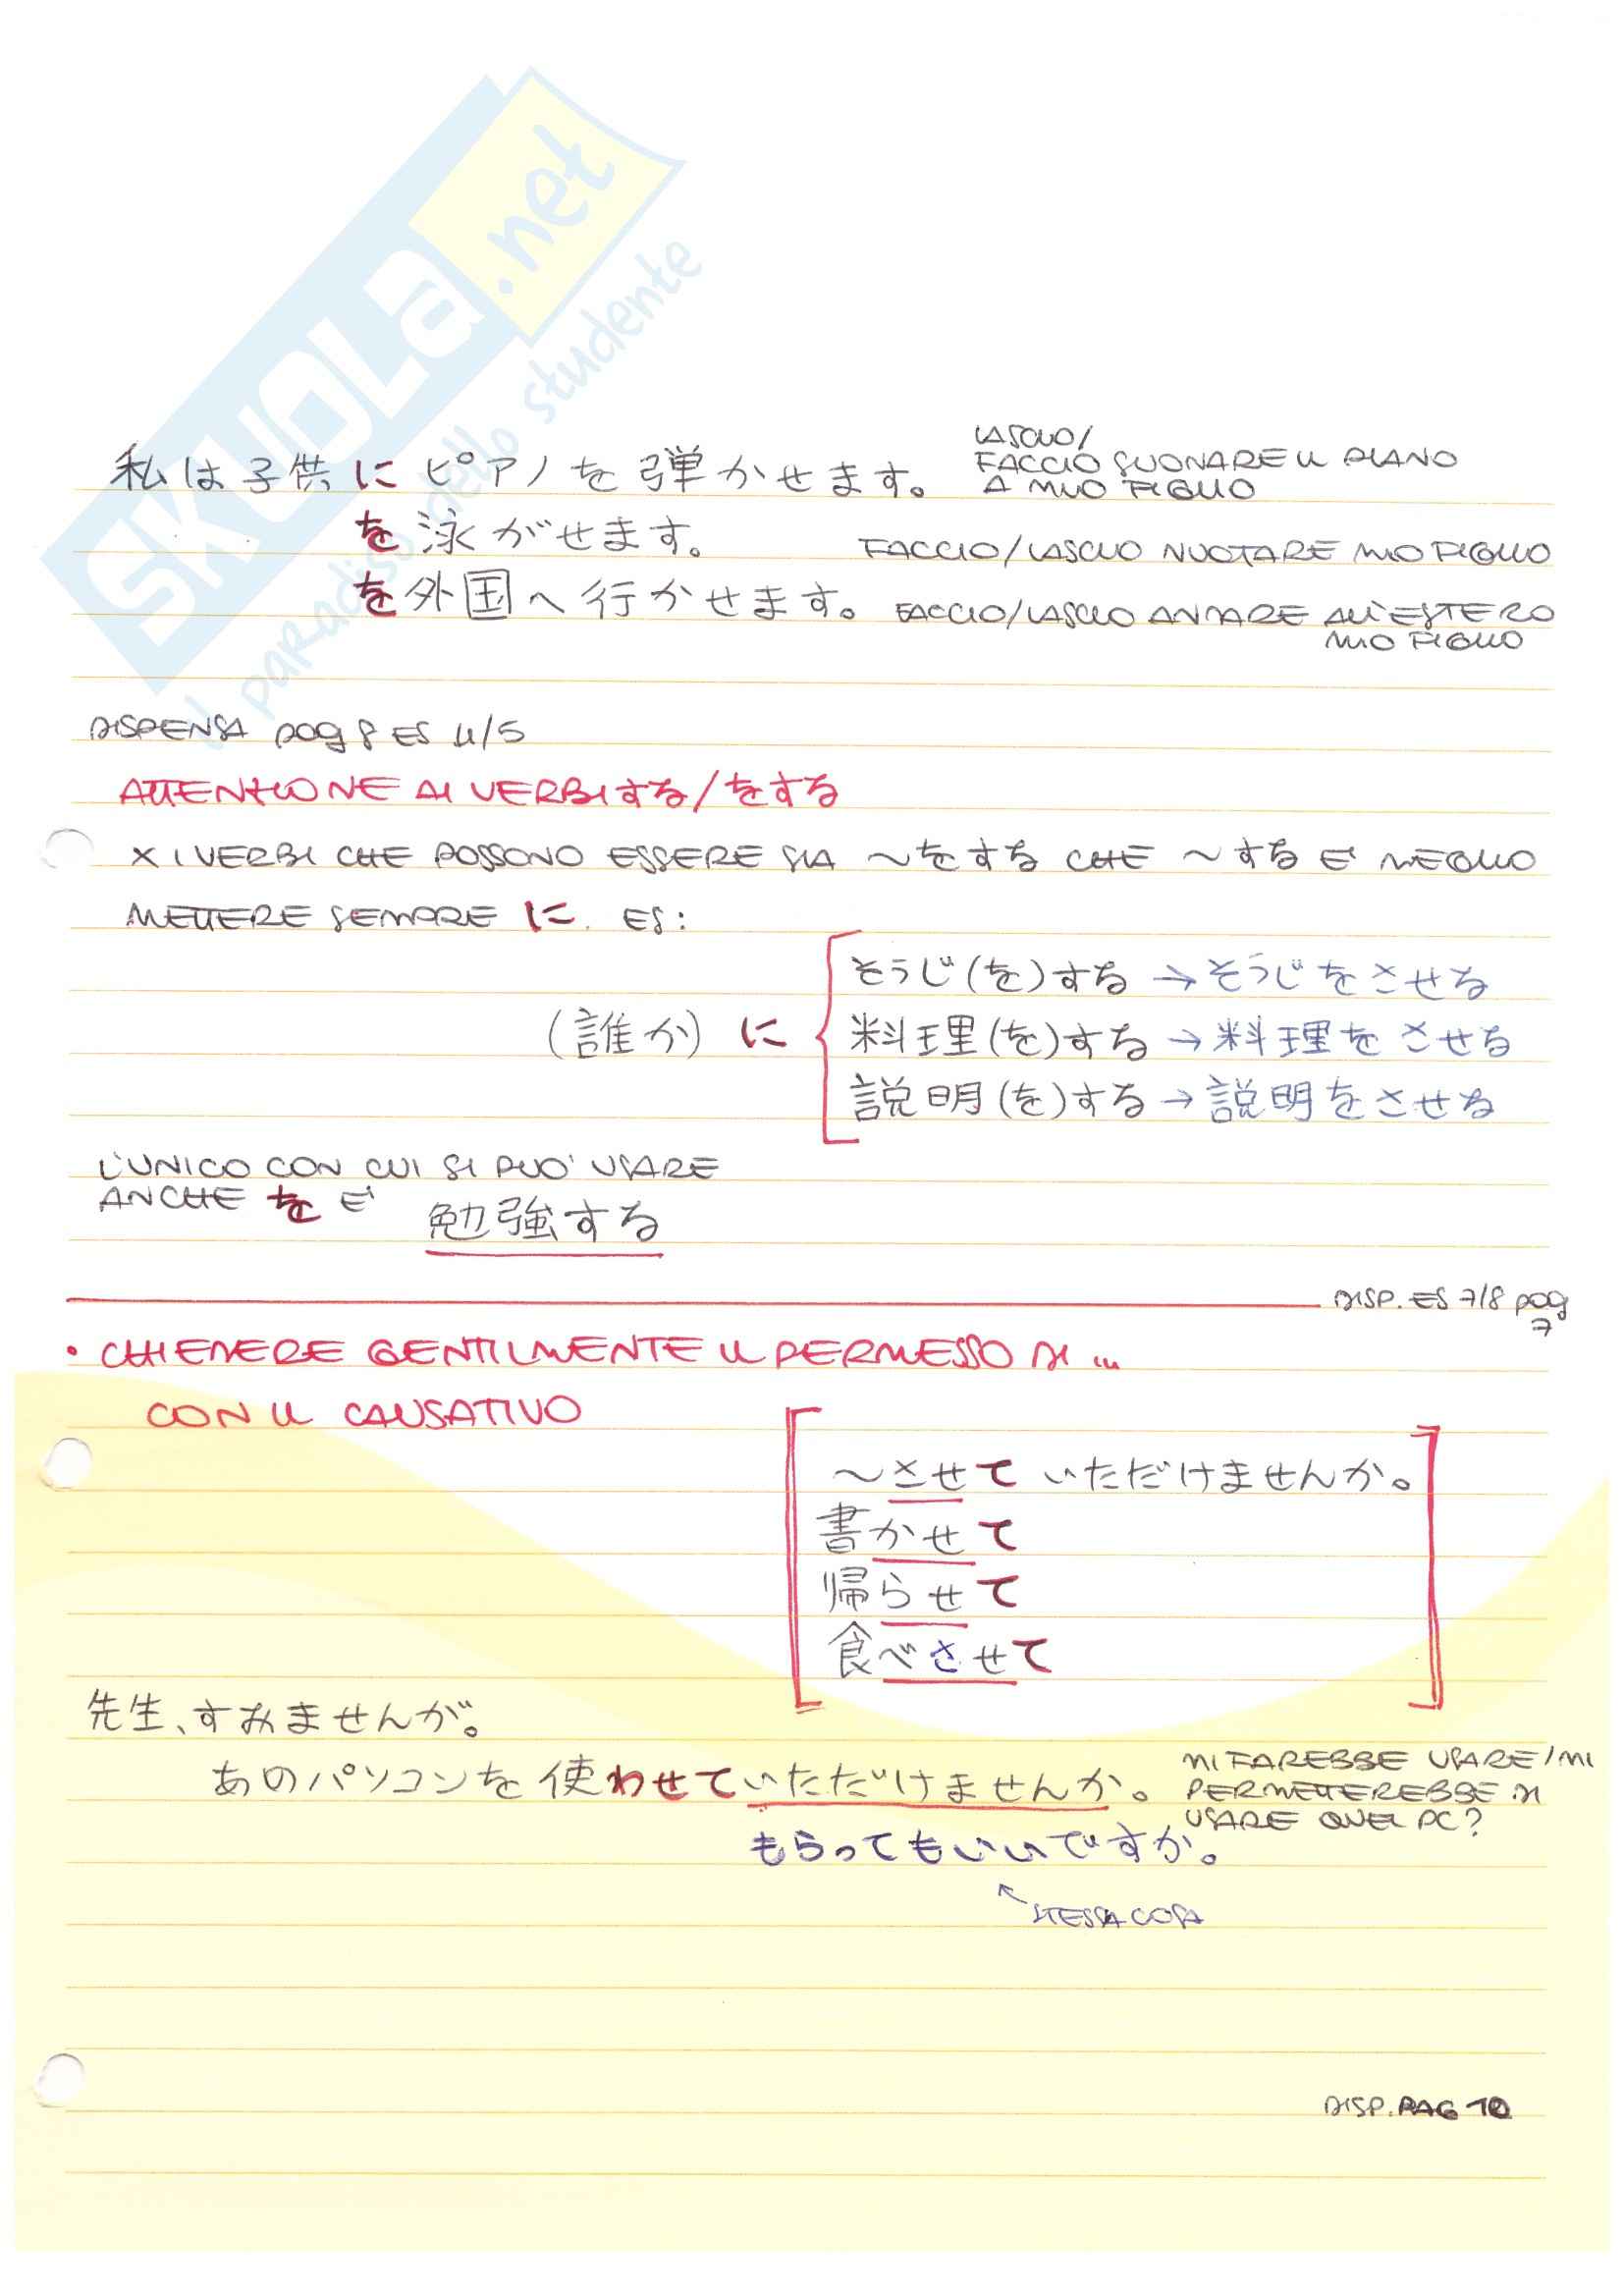 SKUOLA.net
il paradiso dello studente
私は子供にピアノを弾かせます。 LASCIO/
FACCIO SUONARE IL PIANO
A MIO FIGLIO
を泳がせます。 FACCIO/LASCIO NUOTARE MIO FIGLIO
を外国へ行かせます。 FACCIO/LASCIO ANDARE ALL'ESTERO
MIO FIGLIO
DISPENSA pag 8 ES 4/5
ATTENZIONE AI VERBI する/をする
X I VERBI CHE POSSONO ESSERE SIA ~をする CHE ~する E' MEGLIO
METTERE SEMPRE に. ES:
そうじ(を)する → そうじをさせる
(誰か) に 料理(を)する → 料理をさせる
説明(を)する → 説明をさせる
L'UNICO CON CUI SI PUO' USARE
ANCHE を E' 勉強する
DISP. ES 7/8 pag
7
• CHIEDERE GENTILMENTE IL PERMESSO DI ...
CON IL CAUSATIVO
~させて いただけませんか。
書かせて
帰らせて
食べさせて
先生、すみませんが。
あのパソコンを使わせていただけませんか。 MI FAREBBE USARE/MI
PERMETTEREBBE DI
USARE QUEL PC?
もらってもいいですか。
↖ STESSA COSA
DISP. PAG 10